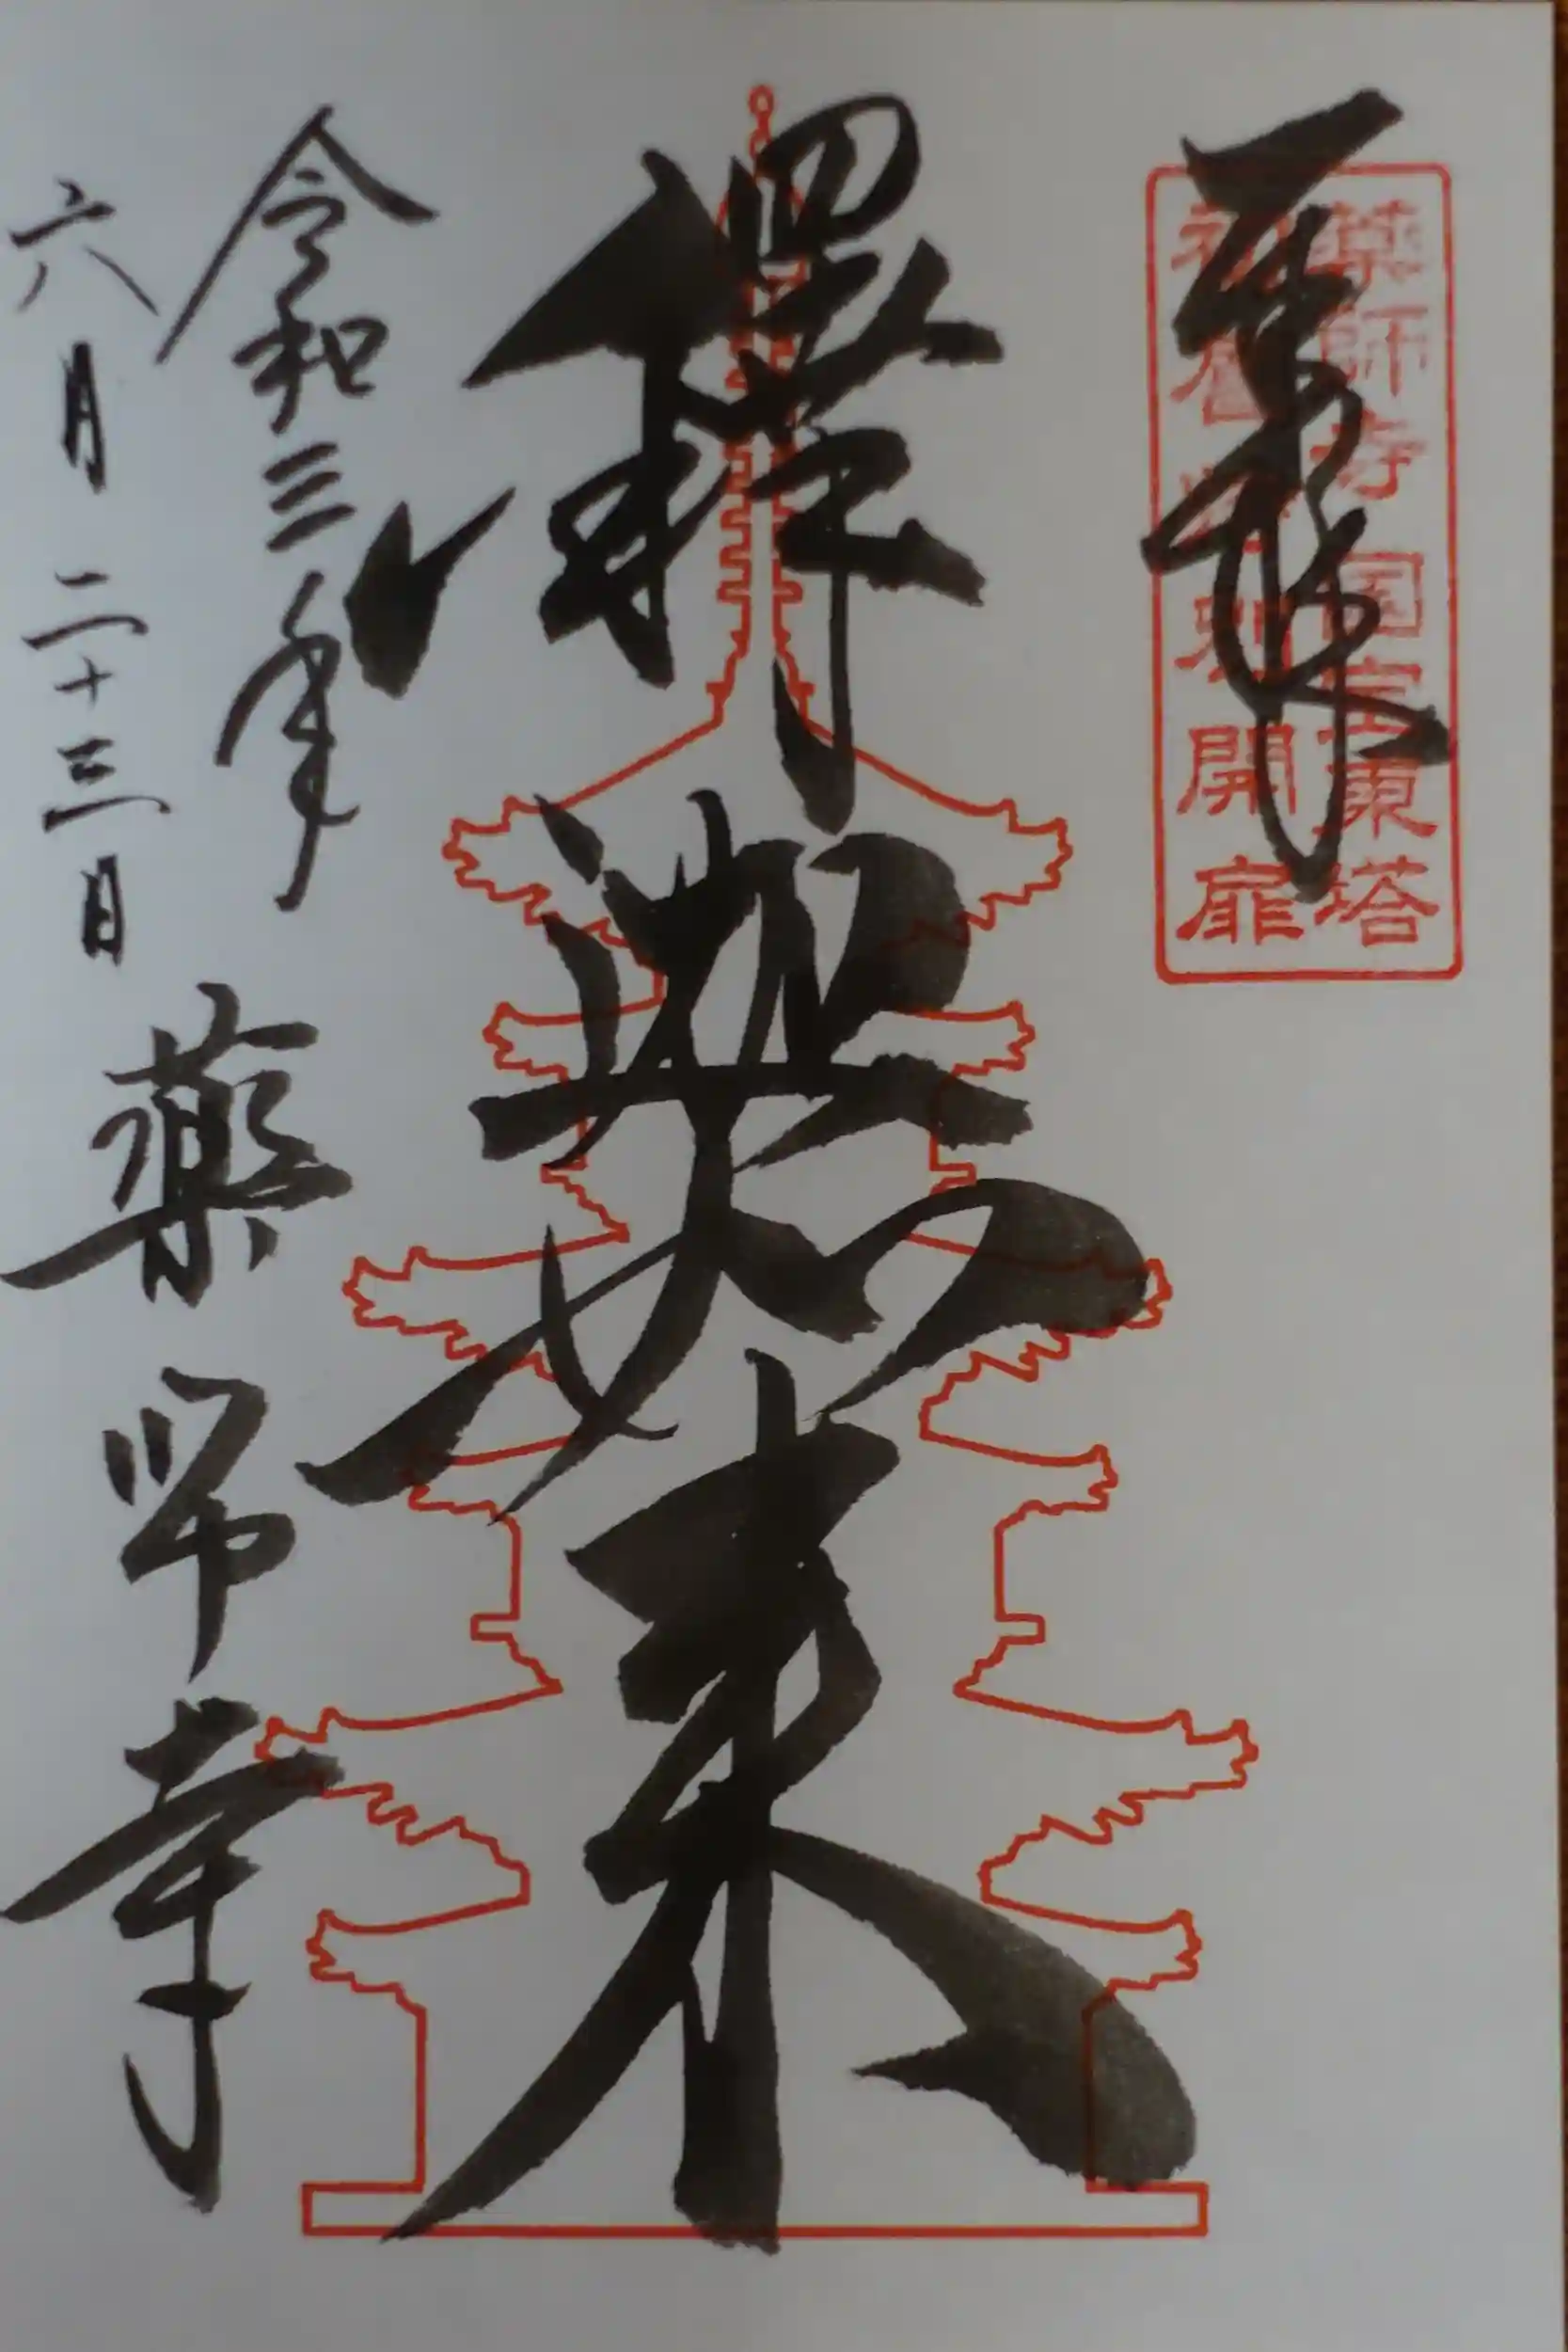 奉拝
薬師寺 国宝東塔
初層特別開扉
釋迦如来
令和三年
六月二十三日
薬師寺